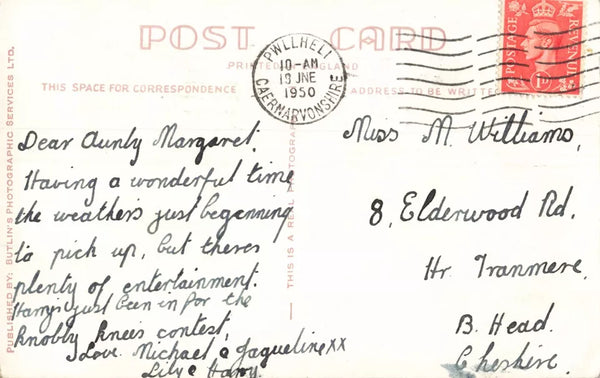 POST CARD
PRINTED IN ENGLAND
THIS SPACE FOR CORRESPONDENCE
ADDRESS TO BE WRITTEN
PWLLHELI
10-AM
19 JNE
1950
CAERNARVONSHIRE
POSTAGE
REVENUE
1D
PUBLISHED BY: BUTLIN'S PHOTOGRAPHIC SERVICES LTD.
THIS IS A REAL PHOTOGRAPH
Dear Aunty Margaret,
Having a wonderful time
the weather's just beginning
to pick up, but theres
plenty of entertainment.
Harry's just been in for the
knobbly knees contest,
Love Michael & Jaqueline xx
Lily & Harry.
Miss M. Williams,
8, Elderwood Rd,
Hr. Tranmere,
B. Head.
Cheshire.